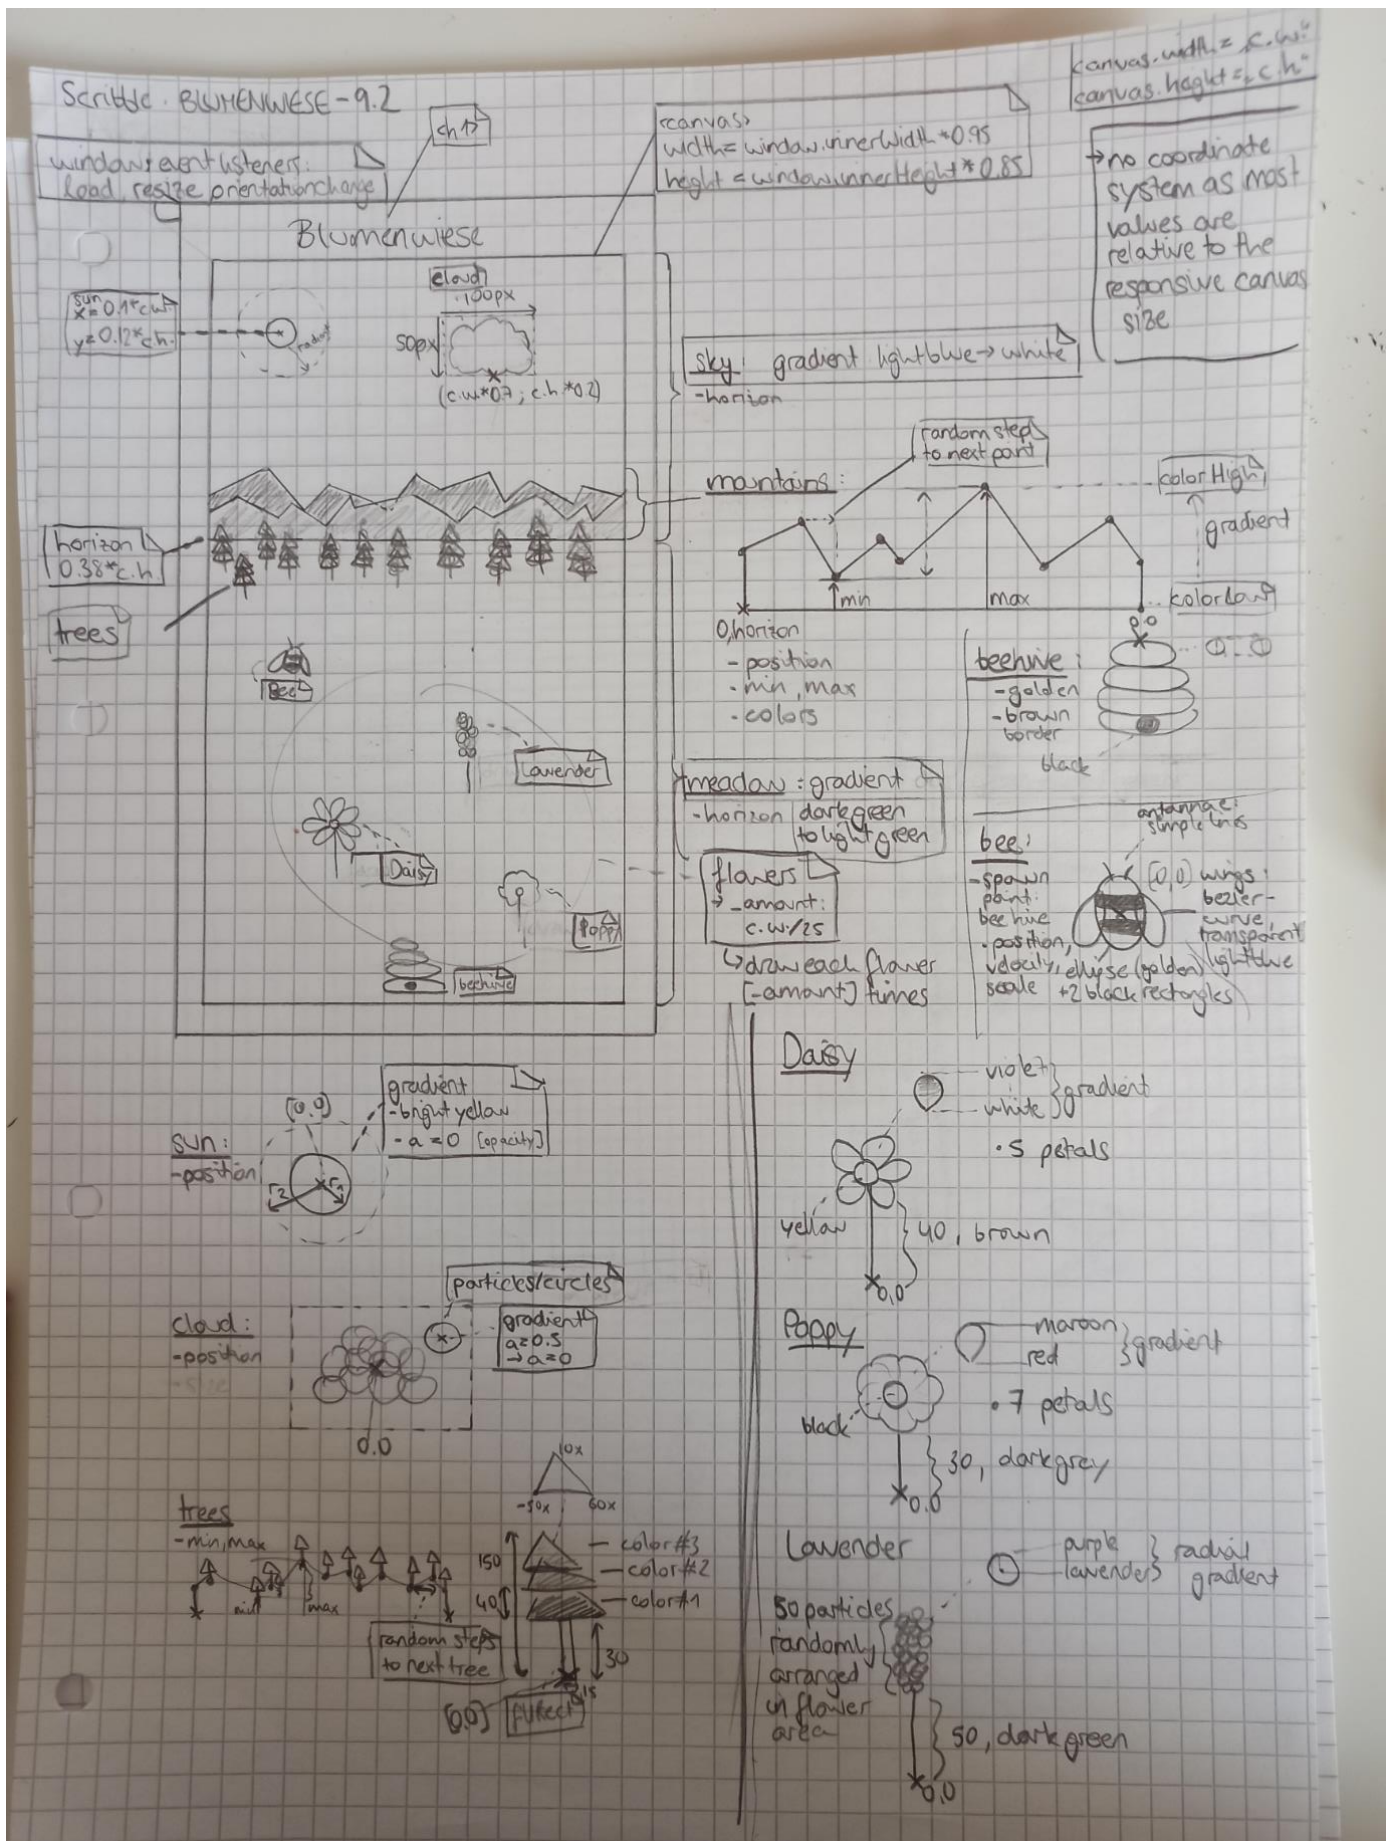 Scribble. BLUMENWIESE - 9.2
canvas.width = "c.w."
canvas.height = "c.h."
window: event listeners:
load, resize, orientationchange
<h1>
<canvas>
width = window.innerWidth * 0.95
height = window.innerHeight * 0.85
→ no coordinate
system as most
values are
relative to the
responsive canvas
size
Blumenwiese
sun
x = 0.1*c.w.
y = 0.12*c.h.
radius
cloud
100px
50px
(c.w.*0.7 ; c.h.*0.2)
sky: gradient lightblue → white
- horizon
horizon
0.38*c.h.
trees
mountains:
random step
to next point
color High
gradient
colorLow
min
max
0,horizon
- position
- min, max
- colors
beehive:
- golden
- brown
border
black
0.0
Bee
Lavender
Daisy
Poppy
beehive
meadow: gradient
- horizon
dark green
to light green
flowers
→ _amount:
c.w./25
↳ draw each flower
[-amount] times
bee:
- spawn
point:
beehive
- position,
velocity,
scale
antannae:
simple lines
(0,0)
wings:
bezier-
curve,
transparent
lightblue
ellipse (golden)
+2 black rectangles
sun:
- position
(0.0)
r2
r1
gradient
- bright yellow
- a = 0 [opacity]
cloud:
- position
particles/circles
gradient
a=0.5
→ a=0
0.0
trees
- min, max
min
max
random steps
to next tree
10x
-50x
60x
150
40
color#3
color#2
color#1
30
15
(0.0)
fillRect
Daisy
violet
white
gradient
• 5 petals
yellow
40, brown
0,0
Poppy
maroon
red
gradient
• 7 petals
black
30, darkgrey
0.0
Lavender
purple
lavender
radial
gradient
50 particles
randomly
arranged
in flower
area
50, darkgreen
0,0